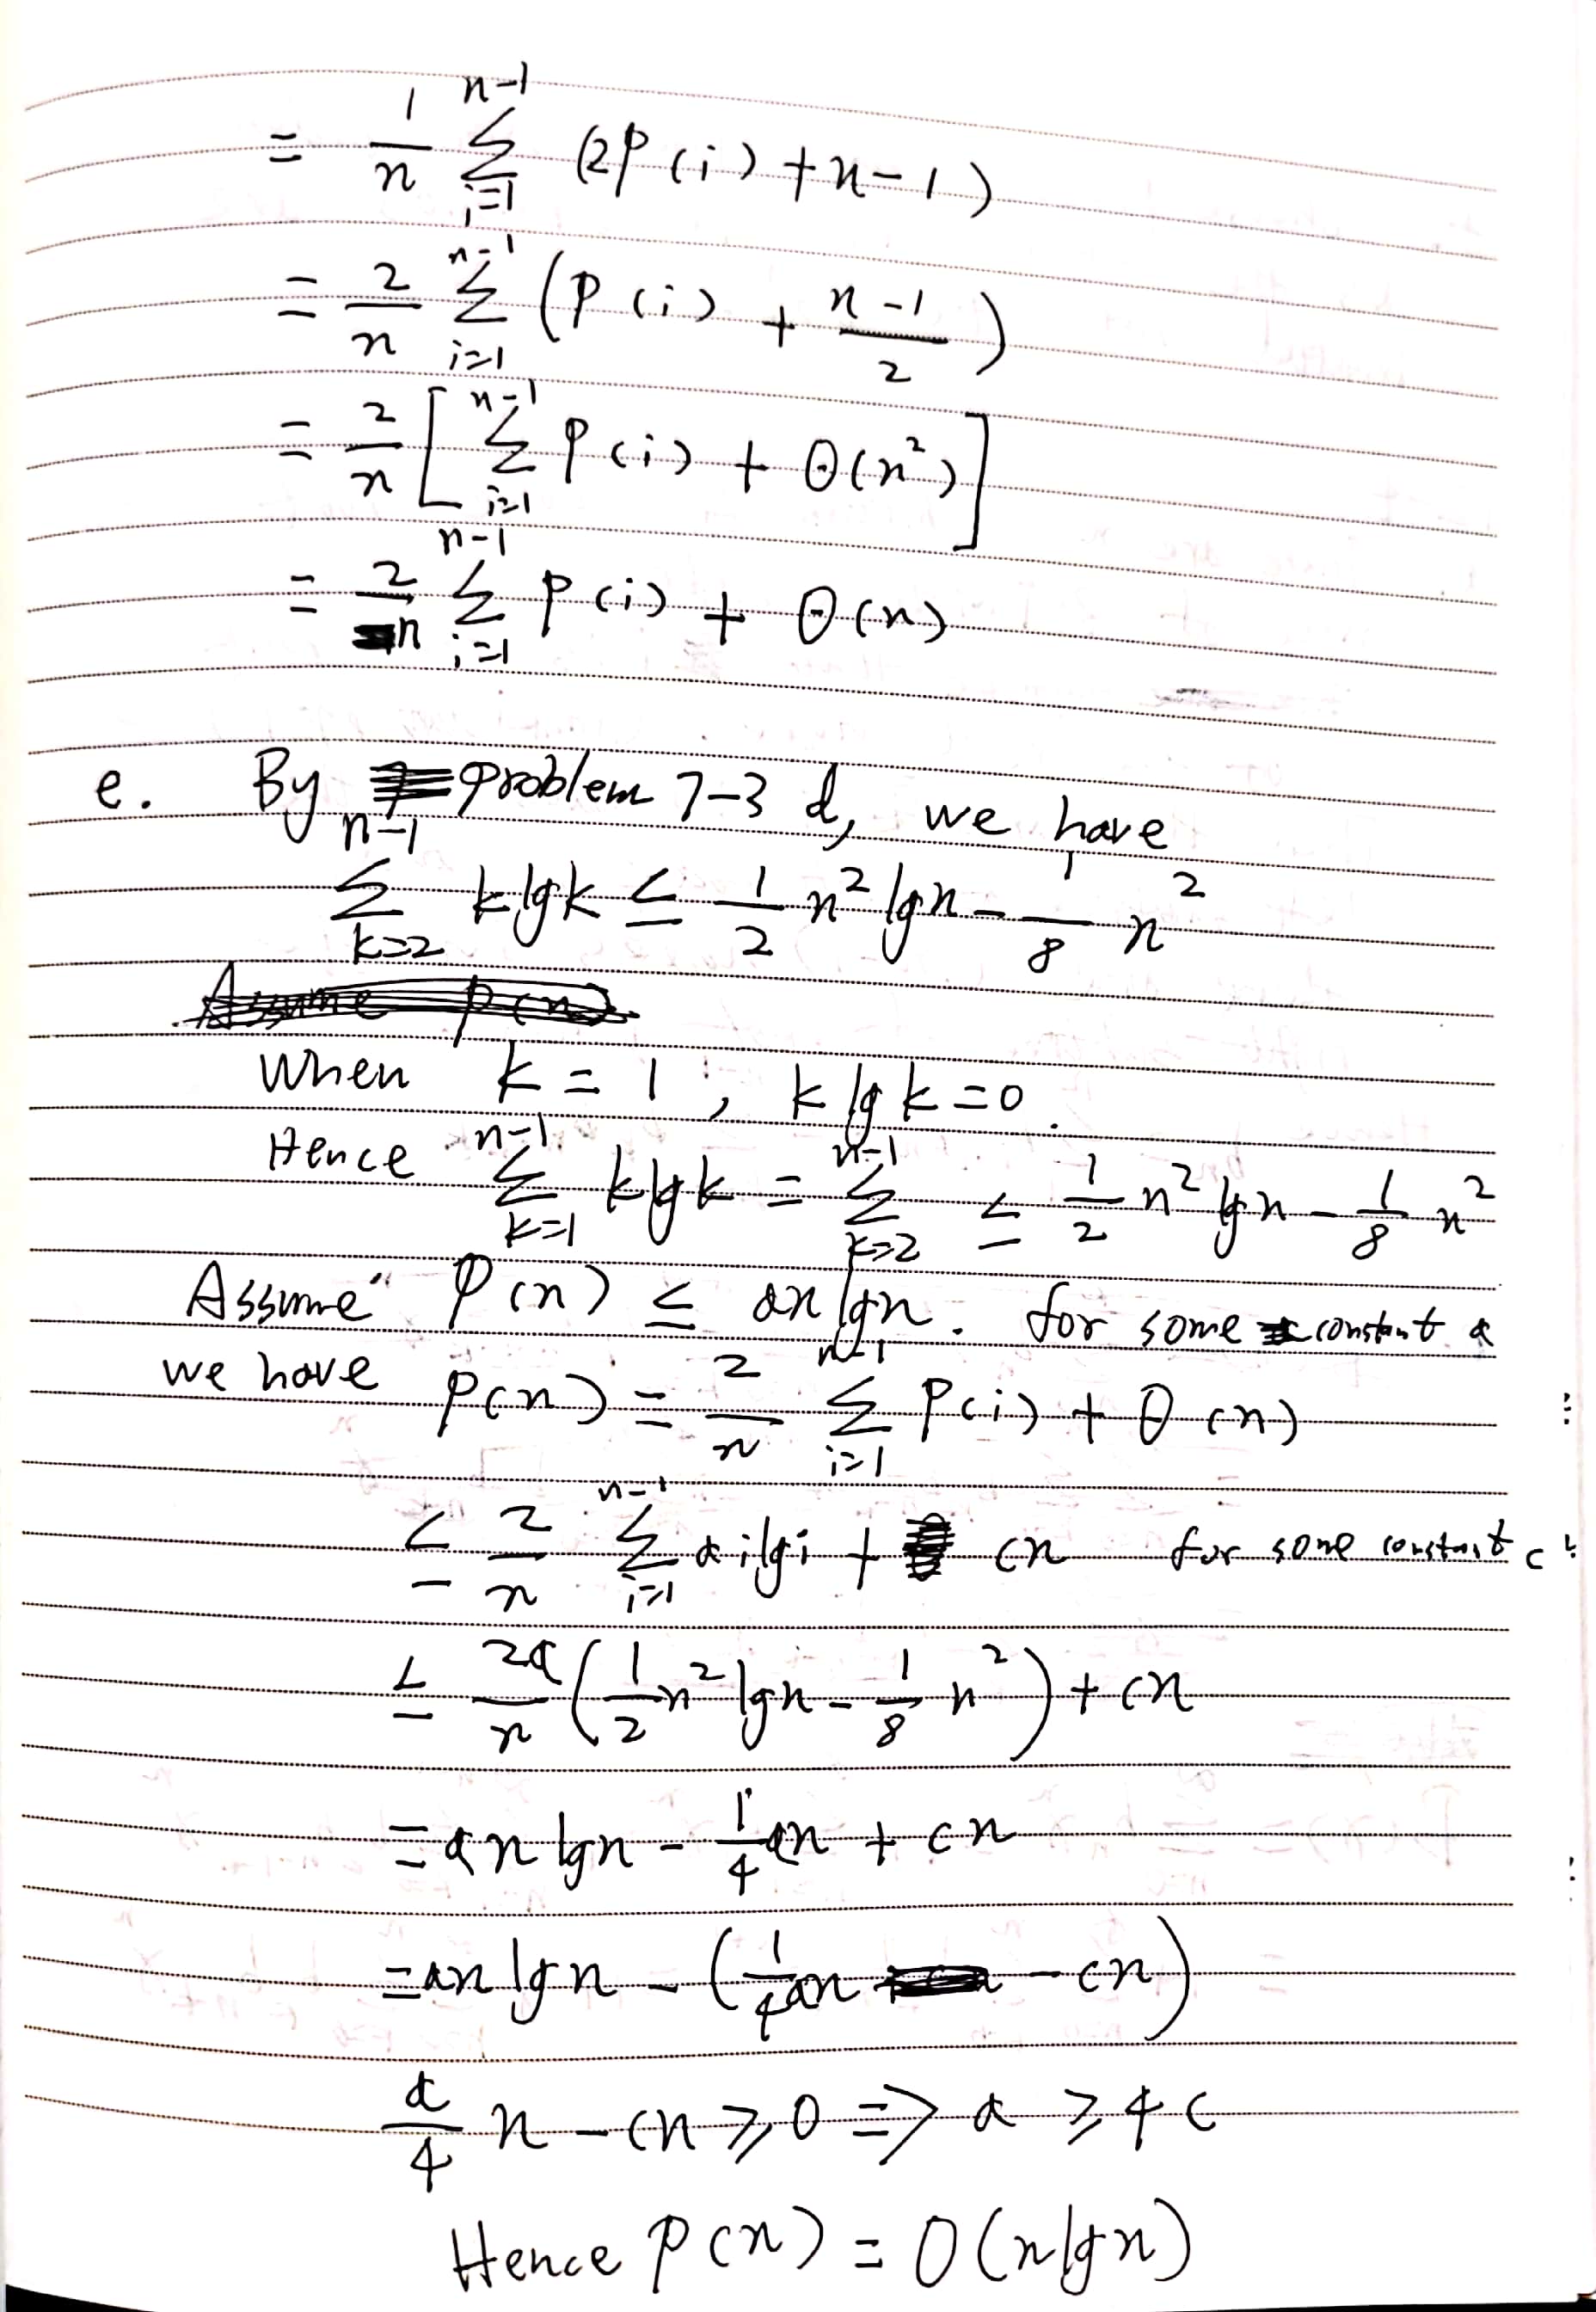 = 1/n Σ_{i=1}^{n-1} (2P(i) + n-1)
= 2/n Σ_{i=1}^{n-1} (P(i) + (n-1)/2)
= 2/n [ Σ_{i=1}^{n-1} P(i) + Θ(n²) ]
= 2/n Σ_{i=1}^{n-1} P(i) + Θ(n)
e. By problem 7-3 d, we have
Σ_{k=2}^{n-1} k lg k ≤ 1/2 n² lg n - 1/8 n²
Assume P(n)
When k = 1, k lg k = 0.
Hence Σ_{k=1}^{n-1} k lg k = Σ_{k=2}^{n-1} ≤ 1/2 n² lg n - 1/8 n²
Assume P(n) ≤ an lg n. for some constant a
we have P(n) = 2/n Σ_{i=1}^{n-1} P(i) + Θ(n)
≤ 2/n Σ_{i=1}^{n-1} a i lg i + cn for some constant c
≤ 2a/n (1/2 n² lg n - 1/8 n²) + cn
= an lg n - 1/4 an + cn
= an lg n - (1/4 an - cn)
a/4 n - cn ≥ 0 ⇒ a ≥ 4c
Hence P(n) = O(n lg n)